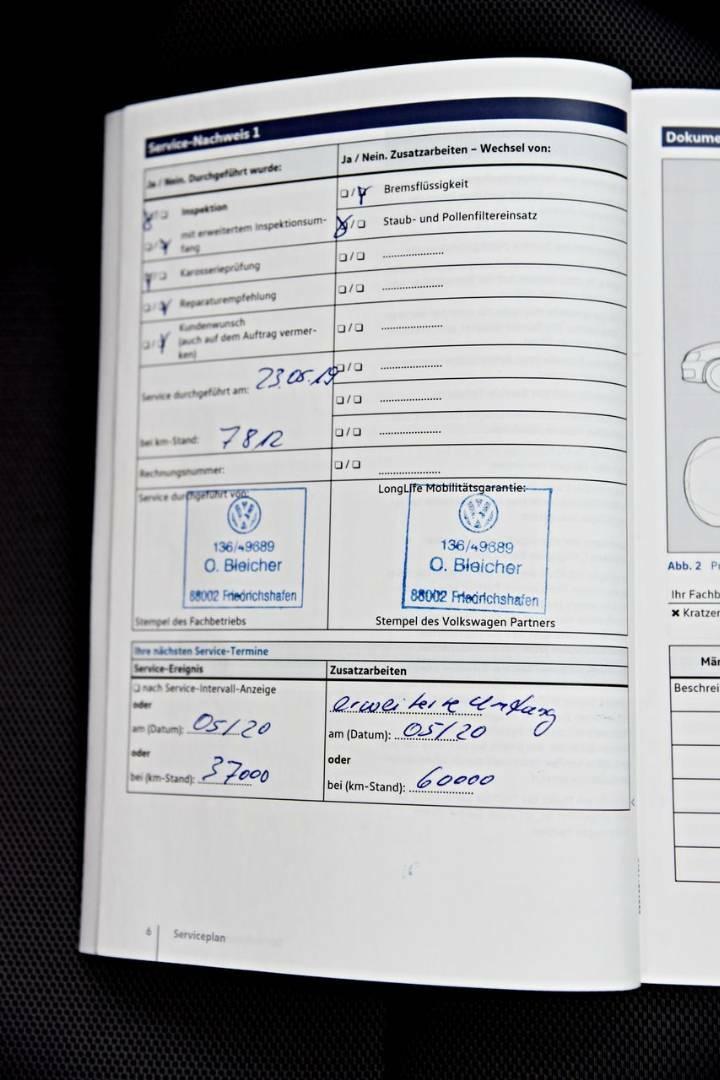 Service-Nachweis 1
Ja / Nein. Durchgeführt wurde:
Ja / Nein. Zusatzarbeiten – Wechsel von:
❑/❑ Inspektion
❑/❑ Bremsflüssigkeit
❑/❑ mit erweitertem Inspektionsum-
fang
❑/❑ Staub- und Pollenfiltereinsatz
❑/❑ Karosserieprüfung
❑/❑ ......................
❑/❑ Reparaturempfehlung
❑/❑ ......................
❑/❑ Kundenwunsch
(auch auf dem Auftrag vermer-
ken)
❑/❑ ......................
Service durchgeführt am: 23.05.19
❑/❑ ......................
❑/❑ ......................
bei km-Stand: 7812
❑/❑ ......................
Rechnungsnummer:
❑/❑ ......................
Service durchgeführt von:
LongLife Mobilitätsgarantie:
136/49689
O. Bleicher
88002 Friedrichshafen
136/49689
O. Bleicher
88002 Friedrichshafen
Stempel des Fachbetriebs
Stempel des Volkswagen Partners
Ihre nächsten Service-Termine
Service-Ereignis
Zusatzarbeiten
❑ nach Service-Intervall-Anzeige
oder
am (Datum): 05/20
oder
bei (km-Stand): 37000
erweiterte Umfang
am (Datum): 05/20
oder
bei (km-Stand): 60000
6 Serviceplan
Dokume
Abb. 2
Ihr Fachb
✖ Kratzer
Mär
Beschrei